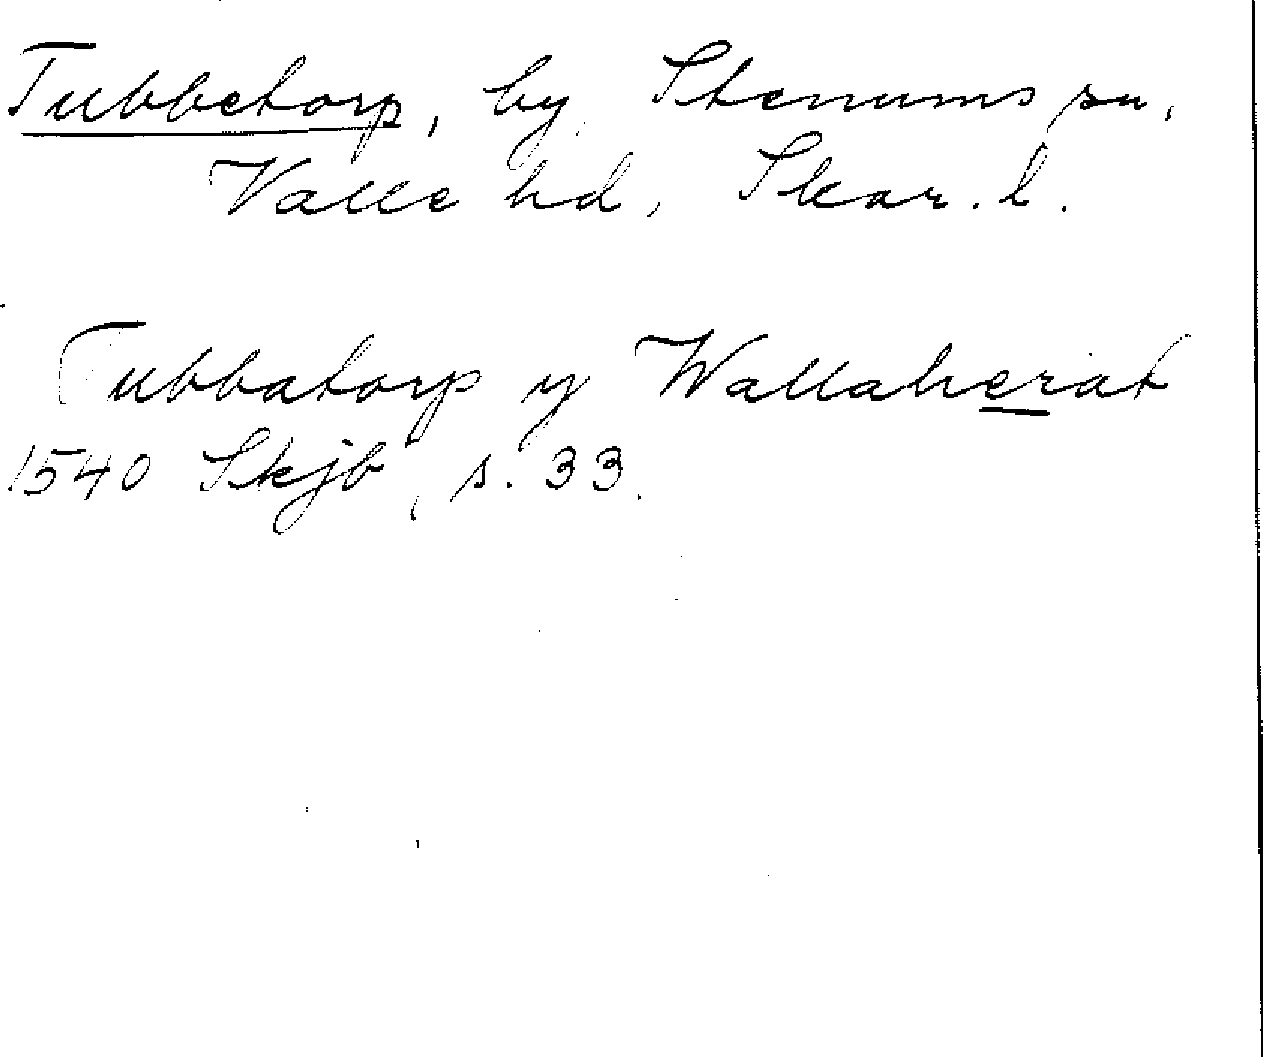 Tubbetorp, by, Stenums sn,
Valle hd, Skar. l.
Tubbatorp y Wallaherat
1540 Skjb, s. 33.